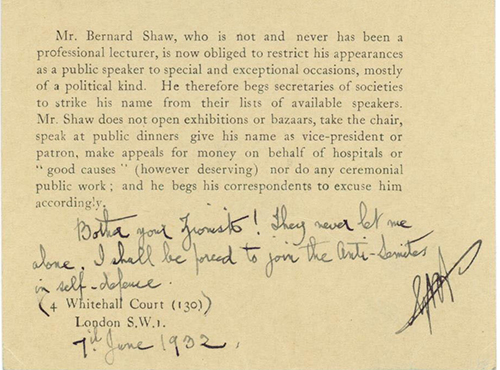 Mr. Bernard Shaw, who is not and never has been a
professional lecturer, is now obliged to restrict his appearances
as a public speaker to special and exceptional occasions, mostly
of a political kind. He therefore begs secretaries of societies
to strike his name from their lists of available speakers.
Mr. Shaw does not open exhibitions or bazaars, take the chair,
speak at public dinners give his name as vice-president or
patron, make appeals for money on behalf of hospitals or
" good causes " (however deserving) nor do any ceremonial
public work ; and he begs his correspondents to excuse him
accordingly.
Bother your Zionists! They never let me
alone. I shall be forced to join the Anti-Semites
in self-defence.
(4 Whitehall Court (130)
London S.W.1.
7th June 1932.